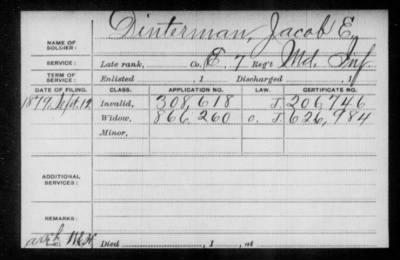 NAME OF SOLDIER: Dinterman, Jacob E.
SERVICE: Late rank, Co. E. 7 Reg't Md. Inf.
TERM OF SERVICE: Enlisted , 1 Discharged , 1
DATE OF FILING. CLASS. APPLICATION NO. LAW. CERTIFICATE NO.
1879, Sept. 12 Invalid, 308,618 J. 206746
Widow, 866,260 J. 626,984
Minor,
ADDITIONAL SERVICES:
REMARKS:
Died , 1 , at